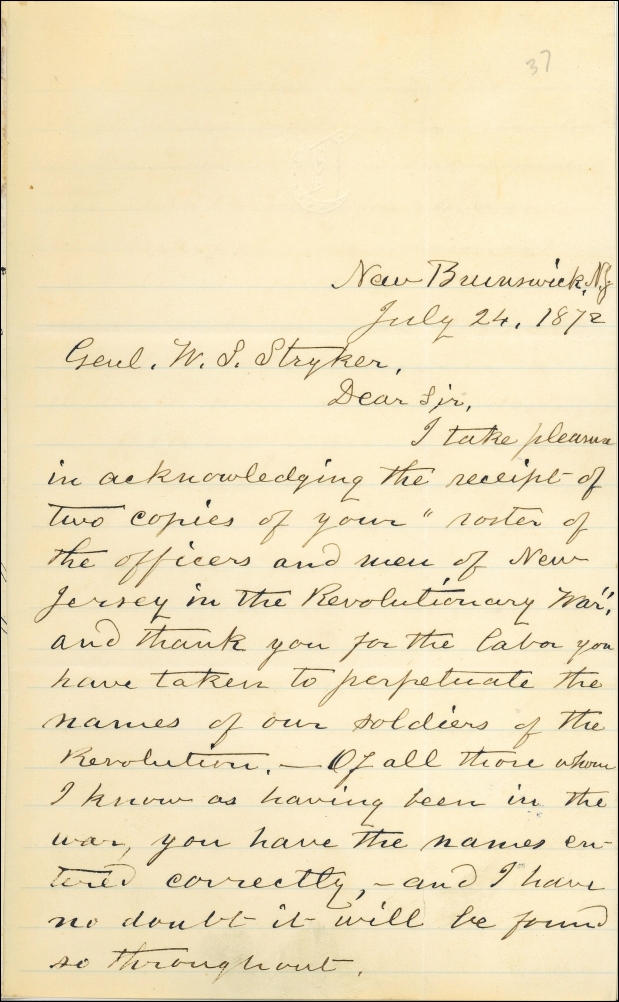 37
New Brunswick, NJ
July 24, 1872
Genl. W. S. Stryker,
Dear Sir,
I take pleasure
in acknowledging the receipt of
two copies of your "roster of
the officers and men of New
Jersey in the Revolutionary War",
and thank you for the labor you
have taken to perpetuate the
names of our soldiers of the
Revolution. — Of all those whom
I know as having been in the
war, you have the names en-
tered correctly, – and I have
no doubt it will be found
so throughout.